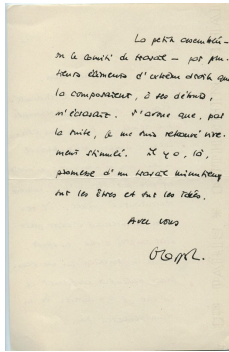 La petite assemblée -
ou le comité de travail - par plu-
sieurs éléments d'extrême droite qui
la composaient, à ses débuts,
m'écrasait. J'avoue que, par
la suite, je me suis retrouvé vive-
ment stimulé. Il y a, là,
promesse d'un travail minutieux
sur les êtres et sur les idées.
Avec vous